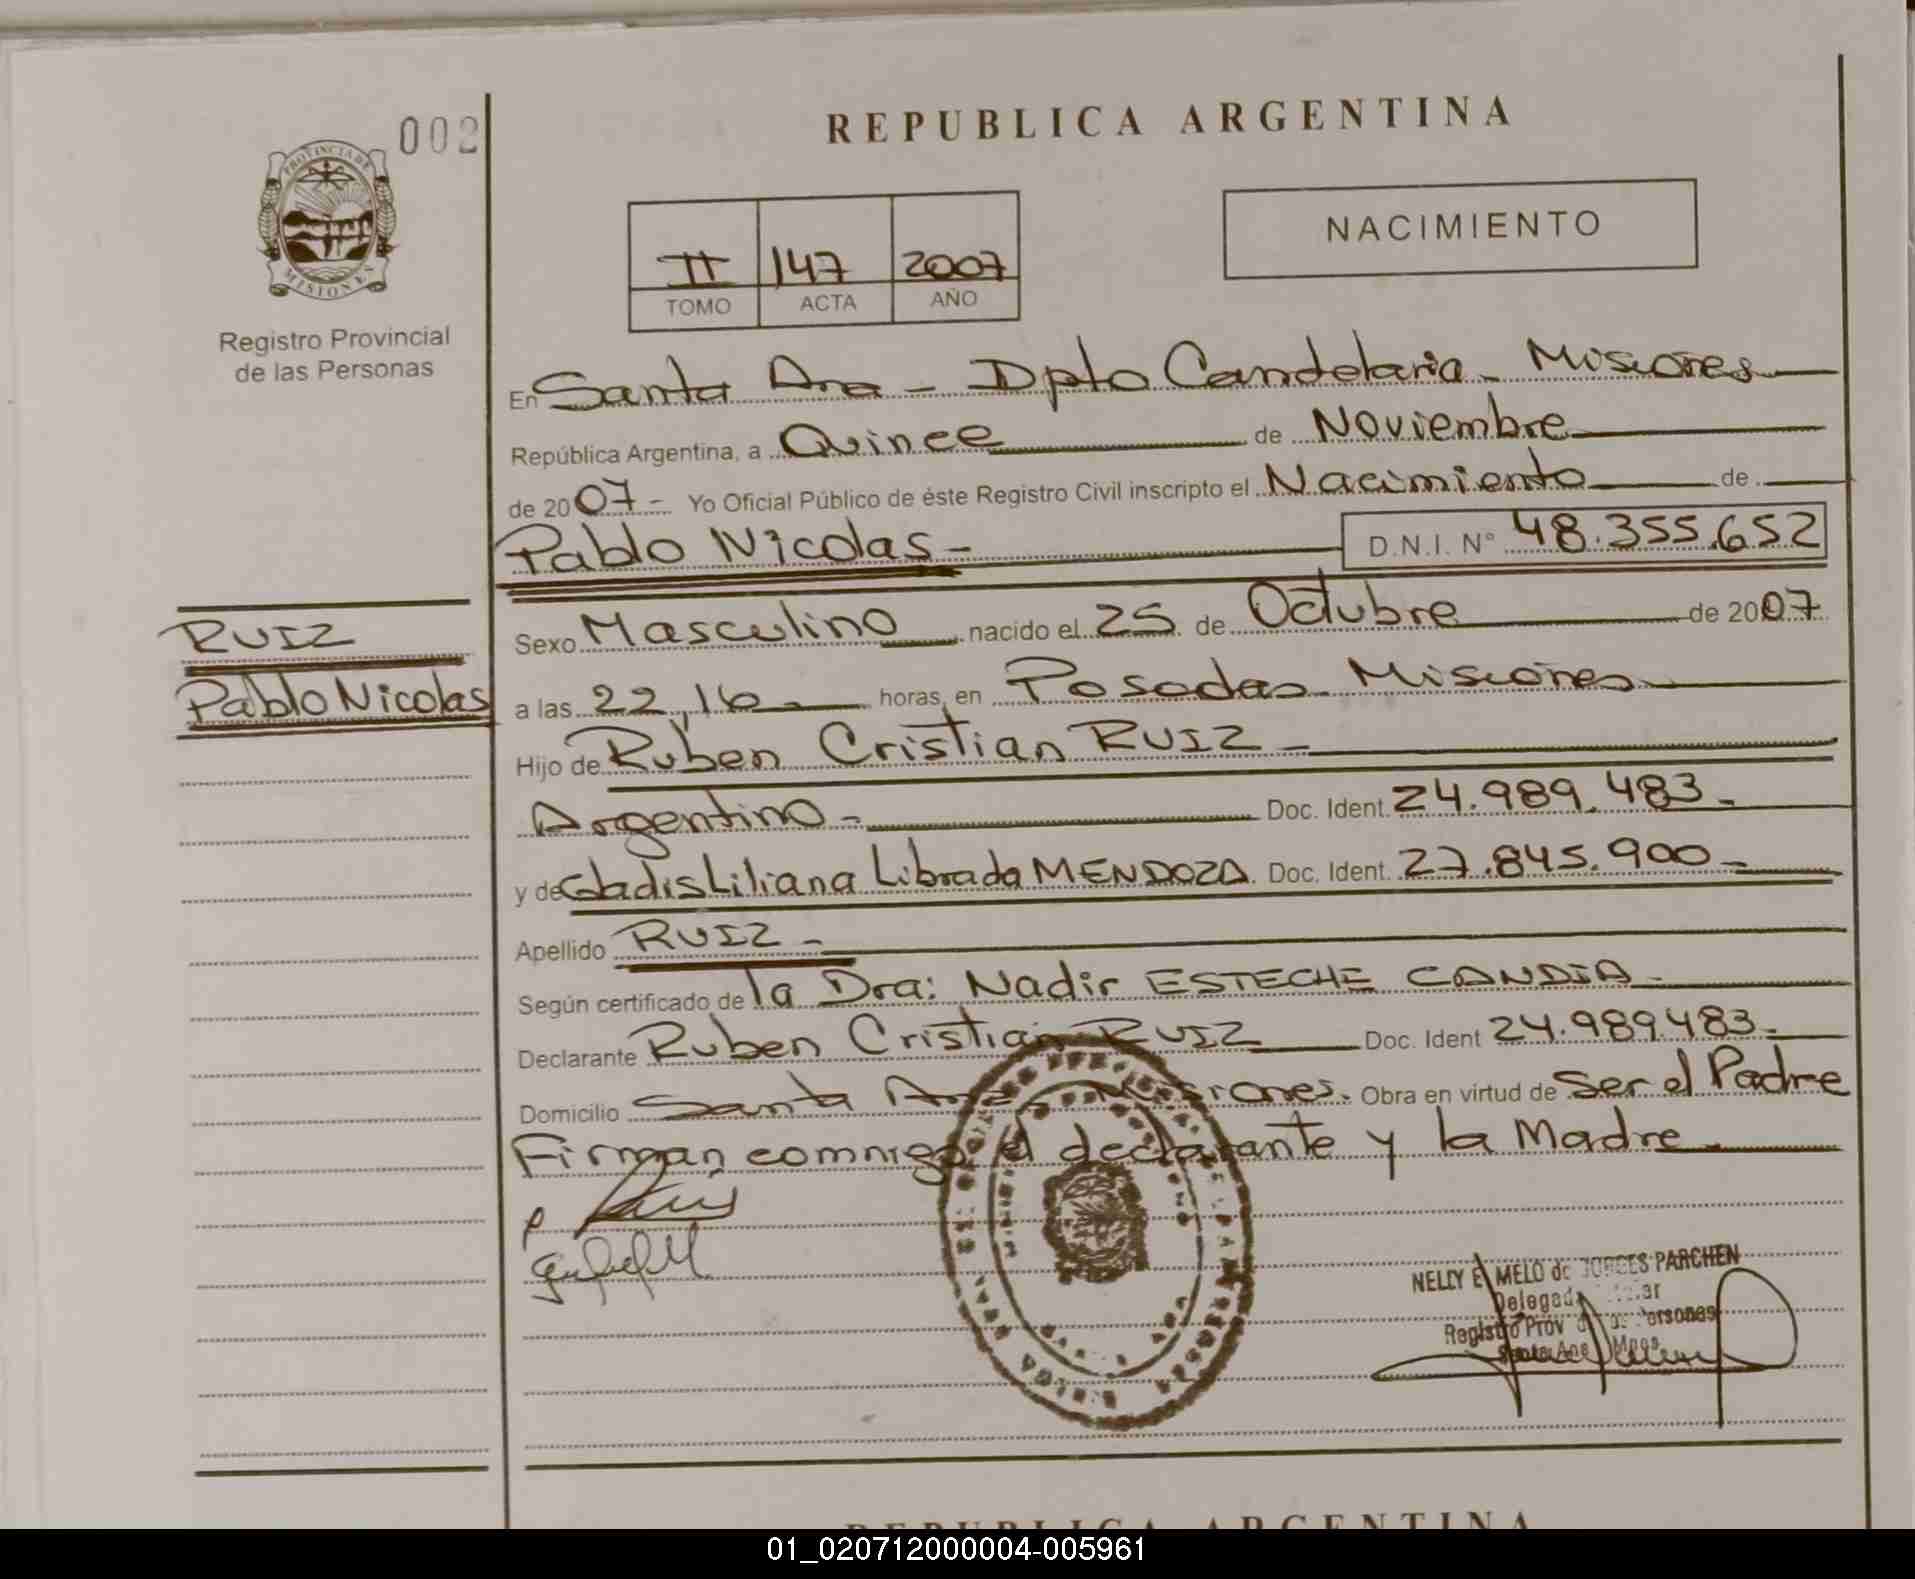 002
PROVINCIA DE
MISIONES
Registro Provincial
de las Personas
REPUBLICA ARGENTINA
NACIMIENTO
II 147 2007
TOMO ACTA AÑO
En Santa Ana - Dpto Candelaria - Misiones
República Argentina, a Quince de Noviembre
de 2007 - Yo Oficial Público de éste Registro Civil inscripto el Nacimiento de
Pablo Nicolas - D.N.I. N° 48.355.652
RUIZ
Pablo Nicolas
Sexo Masculino nacido el 25 de Octubre de 2007
a las 22,16 - horas, en Posadas - Misiones
Hijo de Ruben Cristian RUIZ -
Argentino - Doc. Ident. 24.989.483 -
y de Gladis Liliana Librada MENDOZA Doc. Ident. 27.845.900 -
Apellido RUIZ -
Según certificado de la Dra: Nadir ESTECHE CANDIA -
Declarante Ruben Cristian RUIZ Doc. Ident 24.989.483 -
Domicilio Santa Ana - Misiones. Obra en virtud de Ser el Padre
Firman comnigo el declarante y la Madre -
NELLY E. MELO de BORGES PARCHEN
Registro Prov
Santa Ana Mnes.
REPUBLICA ARGENTINA
01_020712000004-005961